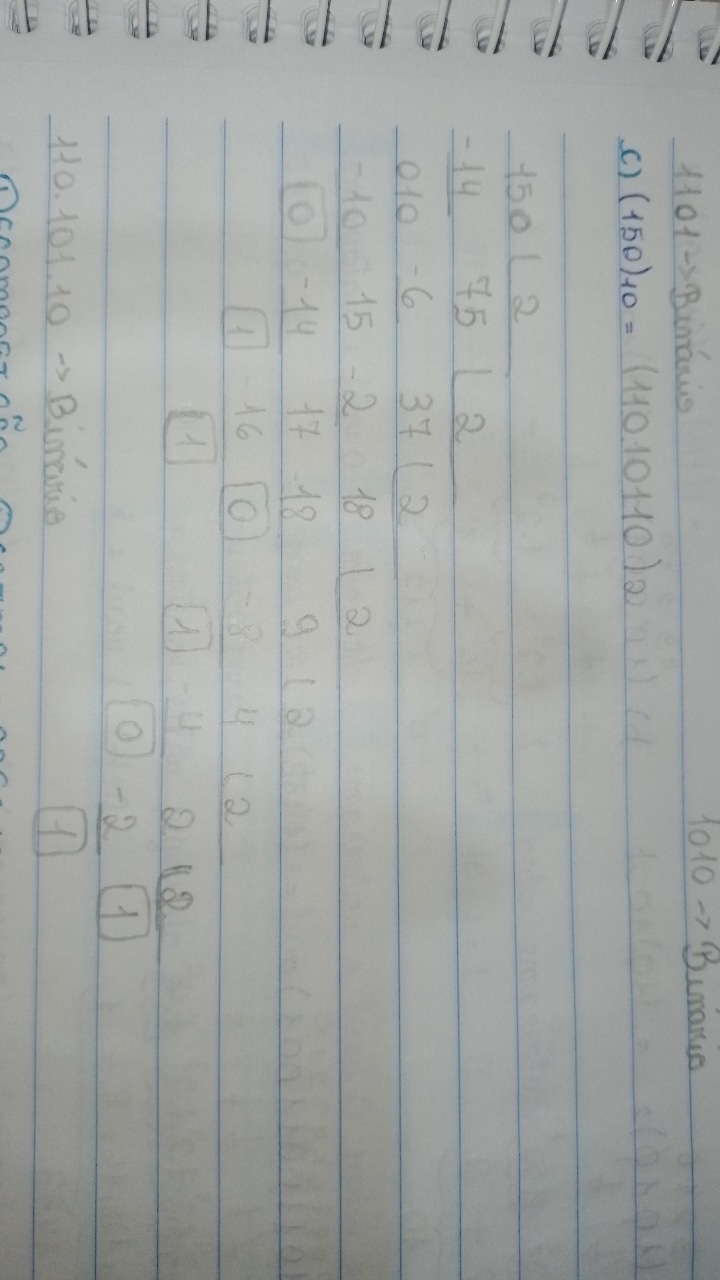 1101 -> Binário 1010 -> Binário
c) (150)10 = (110.10110)2
150 2
-14 75 2
010 -6 37 2
-10 15 -2 18 2
0 -14 17 18 9 2
1 -16 0 -8 4 2
1 1 -4 2 2
0 -2 1
1
110.101.10 -> Binário